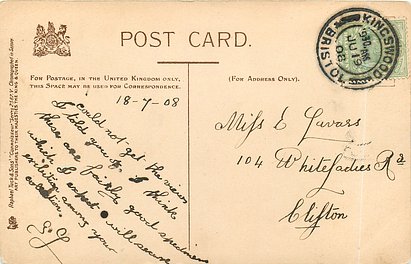 POST CARD.
FOR POSTAGE, IN THE UNITED KINGDOM ONLY,
THIS SPACE MAY BE USED FOR CORRESPONDENCE.
(FOR ADDRESS ONLY).
KINGSWOOD
BRISTOL
JY 19
08
18-7-08
I could not get the views
I told you of. I think
these are fairly good specimens
which I expect will secure
exhibition among your
collection.
E.J
Miss E Lavars
104 Whiteladies Rd
Clifton
Raphael Tuck & Sons'
ART PUBLISHERS TO THEIR MAJESTIES THE KING & QUEEN.